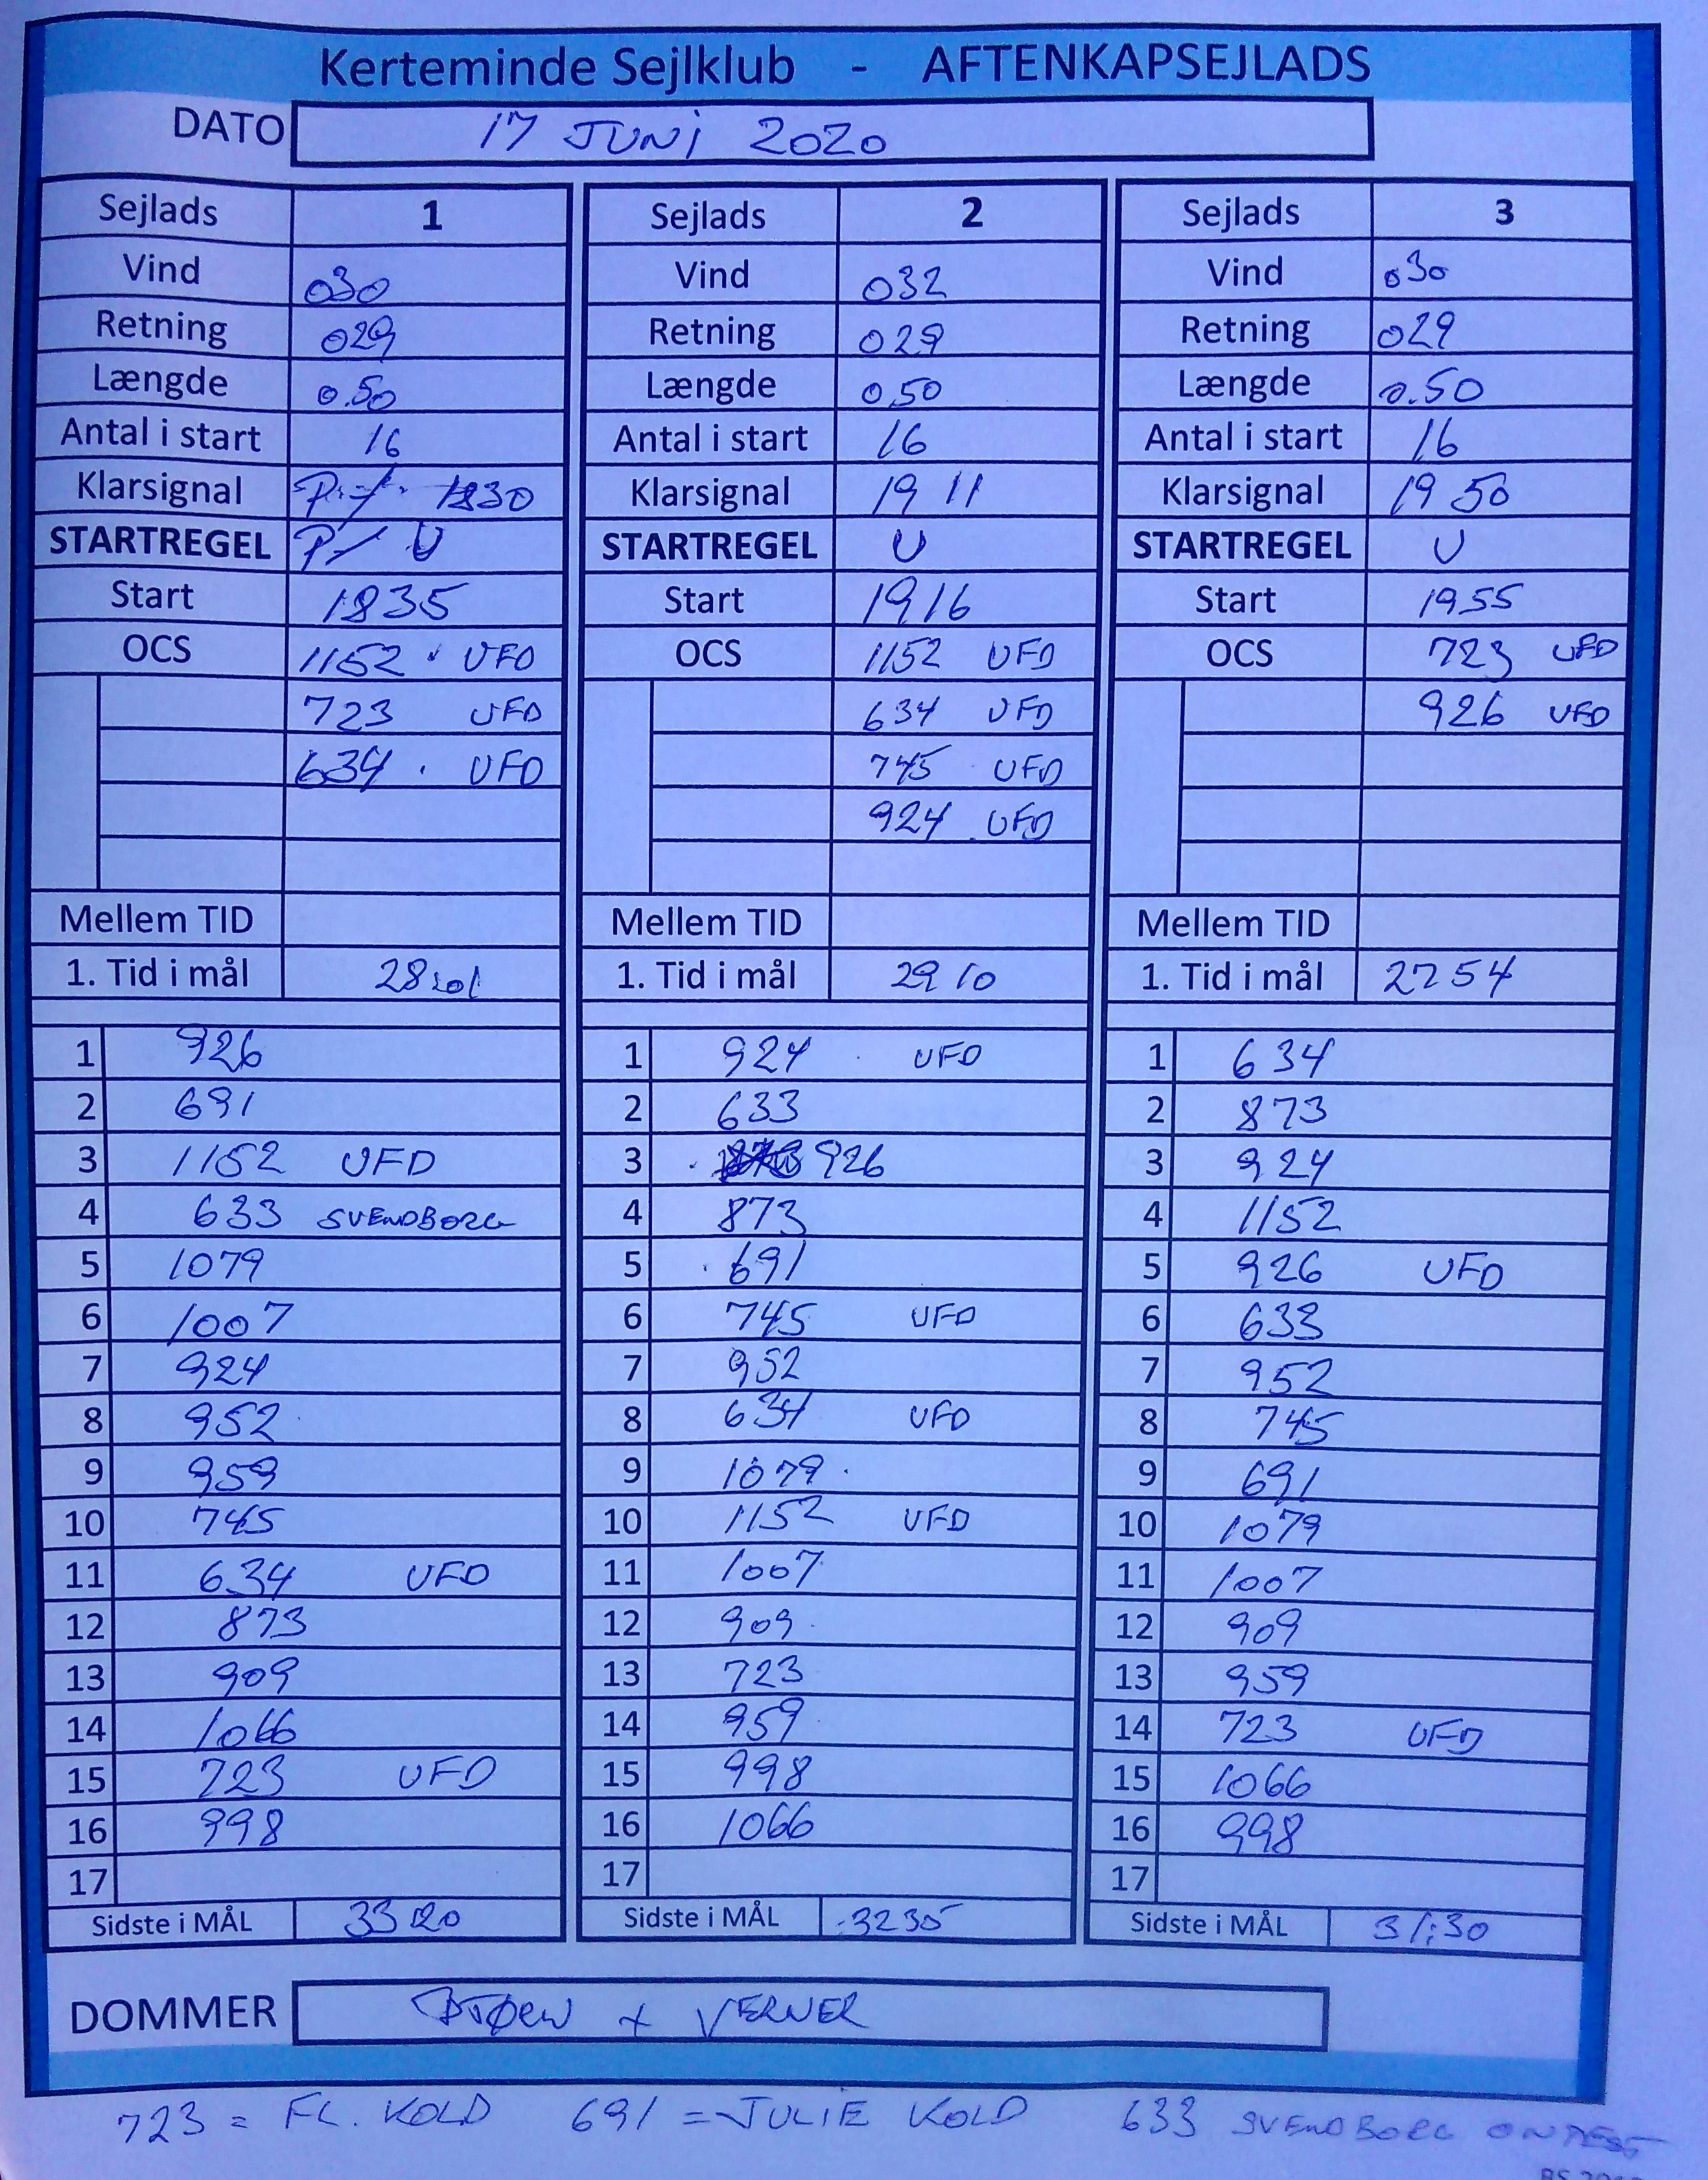 Kerteminde Sejlklub - AFTENKAPSEJLADS
DATO 17 JUNI 2020
Sejlads 1 Sejlads 2 Sejlads 3
Vind 030 Vind 032 Vind 030
Retning 029 Retning 029 Retning 029
Længde 0.50 Længde 0,50 Længde 0.50
Antal i start 16 Antal i start 16 Antal i start 16
Klarsignal 1830 Klarsignal 19 11 Klarsignal 19 50
STARTREGEL U STARTREGEL U STARTREGEL U
Start 1835 Start 1916 Start 1955
OCS 1152 UFD OCS 1152 UFD OCS 723 UFD
723 UFD 634 UFD 926 UFD
634 UFD 745 UFD
924 UFD
Mellem TID Mellem TID Mellem TID
1. Tid i mål 1. Tid i mål 29 10 1. Tid i mål 2754
1 926 1 924 UFD 1 634
2 691 2 633 2 873
3 1152 UFD 3 926 3 924
4 633 SVENDBORG 4 873 4 1152
5 1079 5 691 5 926 UFD
6 1007 6 745 UFD 6 633
7 924 7 952 7 952
8 952 8 634 UFD 8 745
9 959 9 1079 9 691
10 745 10 1152 UFD 10 1079
11 634 UFD 11 1007 11 1007
12 873 12 909 12 909
13 909 13 723 13 959
14 1066 14 959 14 723 UFD
15 723 UFD 15 998 15 1066
16 998 16 1066 16 998
17 17 17
Sidste i MÅL 33 20 Sidste i MÅL 3235 Sidste i MÅL 31:30
DOMMER BJØRN + VERNER
723 = FL. KOLD 691 = JULIE KOLD 633 SVENDBORG